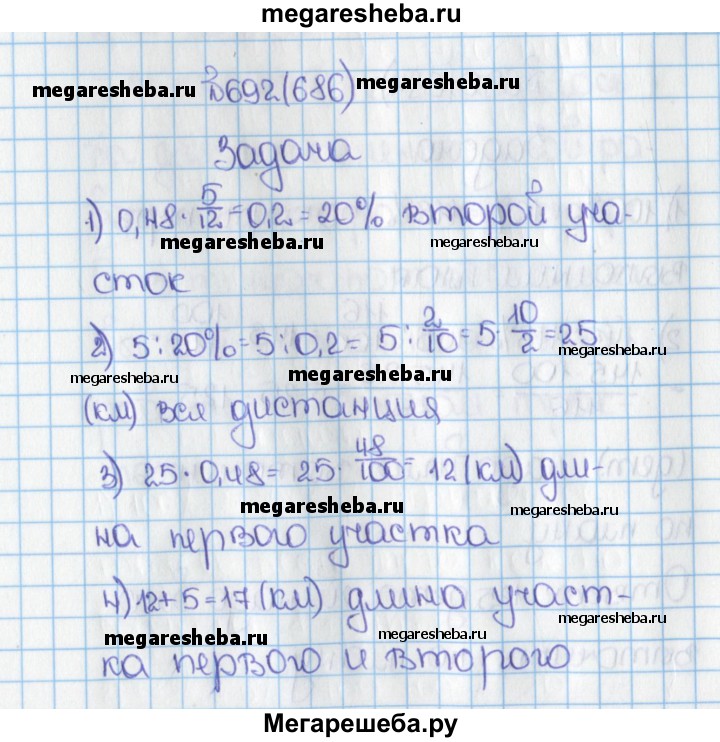 megaresheba.ru
№692(686)
megaresheba.ru megaresheba.ru
Задача
1) 0,48 · 5/12 = 0,2 = 20% второй уча-
megaresheba.ru megaresheba.ru
сток
2) 5 : 20% = 5 : 0,2 = 5 : 2/10 = 5 · 10/2 = 25
megaresheba.ru megaresheba.ru megaresheba.ru
(км) вся дистанция
3) 25 · 0,48 = 25 · 48/100 = 12 (км) дли-
megaresheba.ru megaresheba.ru
на первого участка
4) 12 + 5 = 17 (км) длина участ-
megaresheba.ru megaresheba.ru megaresheba.ru
ка первого и второго
Мегарешеба.ру